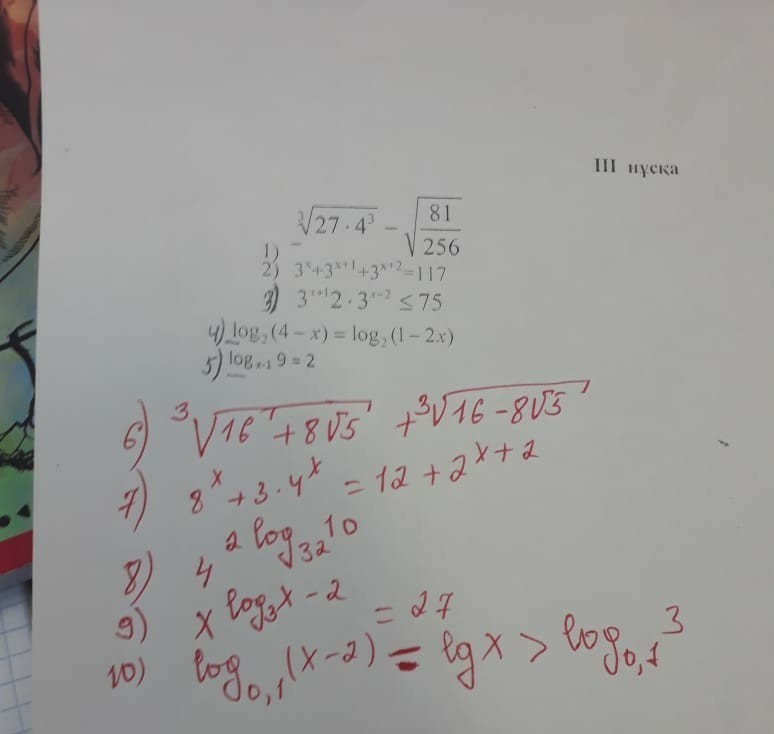 III нұсқа
1) ∛(27 · 4³) − √(81/256)
2) 3ˣ+3ˣ⁺¹+3ˣ⁺²=117
3) 3ˣ⁺¹2 · 3ˣ⁻² ≤ 75
4) log₂(4 − x) = log₂(1 − 2x)
5) logₓ₋₁ 9 = 2
6) ∛(16 + 8√5) + ∛(16 − 8√5)
7) 8ˣ + 3 · 4ˣ = 12 + 2ˣ⁺²
8) 4^(2 log₃₂ 10)
9) x^(log₃x − 2) = 27
10) log₀,₁(x − 2) = lg x > log₀,₁ 3